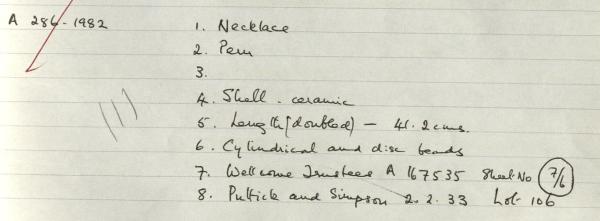 A 286-1982 1. Necklace
2. Peru
3.
4. Shell - ceramic
5. Length (doubled) - 41.2 cms.
6. Cylindrical and disc beads
7. Wellcome Trustees A 167535 Sheet No 7/6
8. Puttick and Simpson 2.2.33 Lot 106